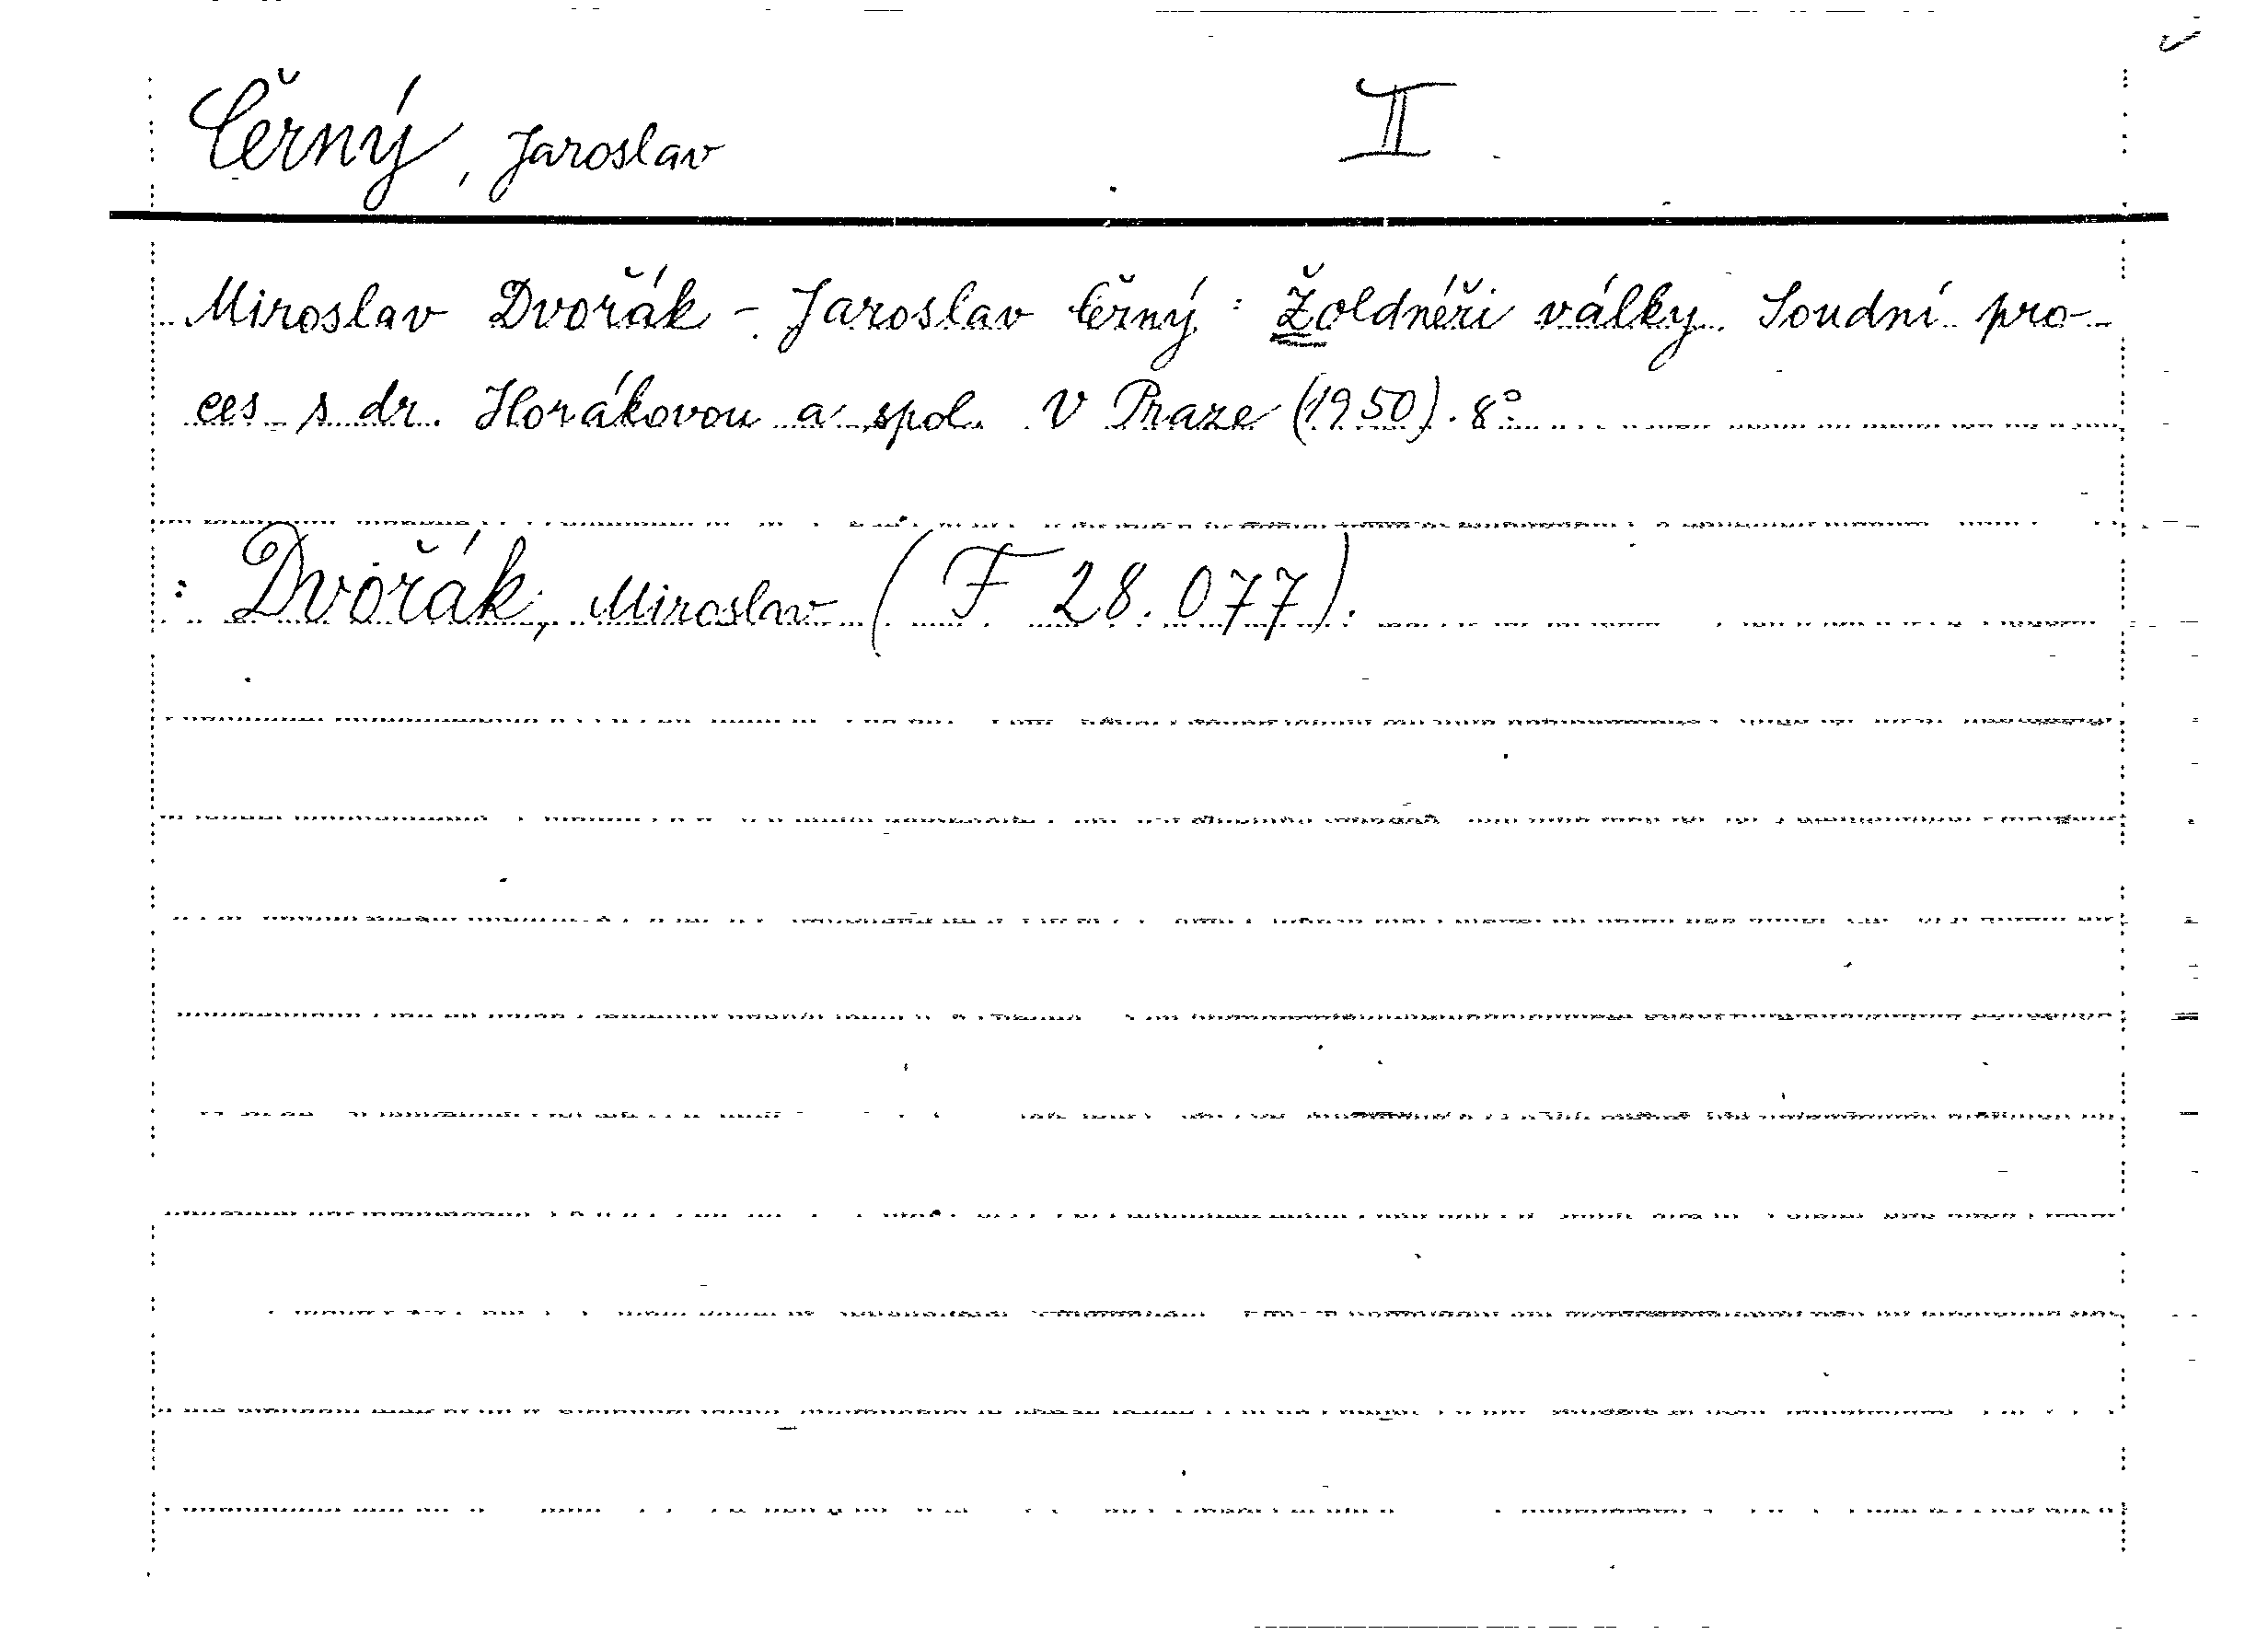 Černý, Jaroslav II
Miroslav Dvořák - Jaroslav Černý: Žoldnéři války. Soudní pro-
ces s dr. Horákovou a spol. V Praze (1950). 8°
: Dvořák, Miroslav (F 28.077).